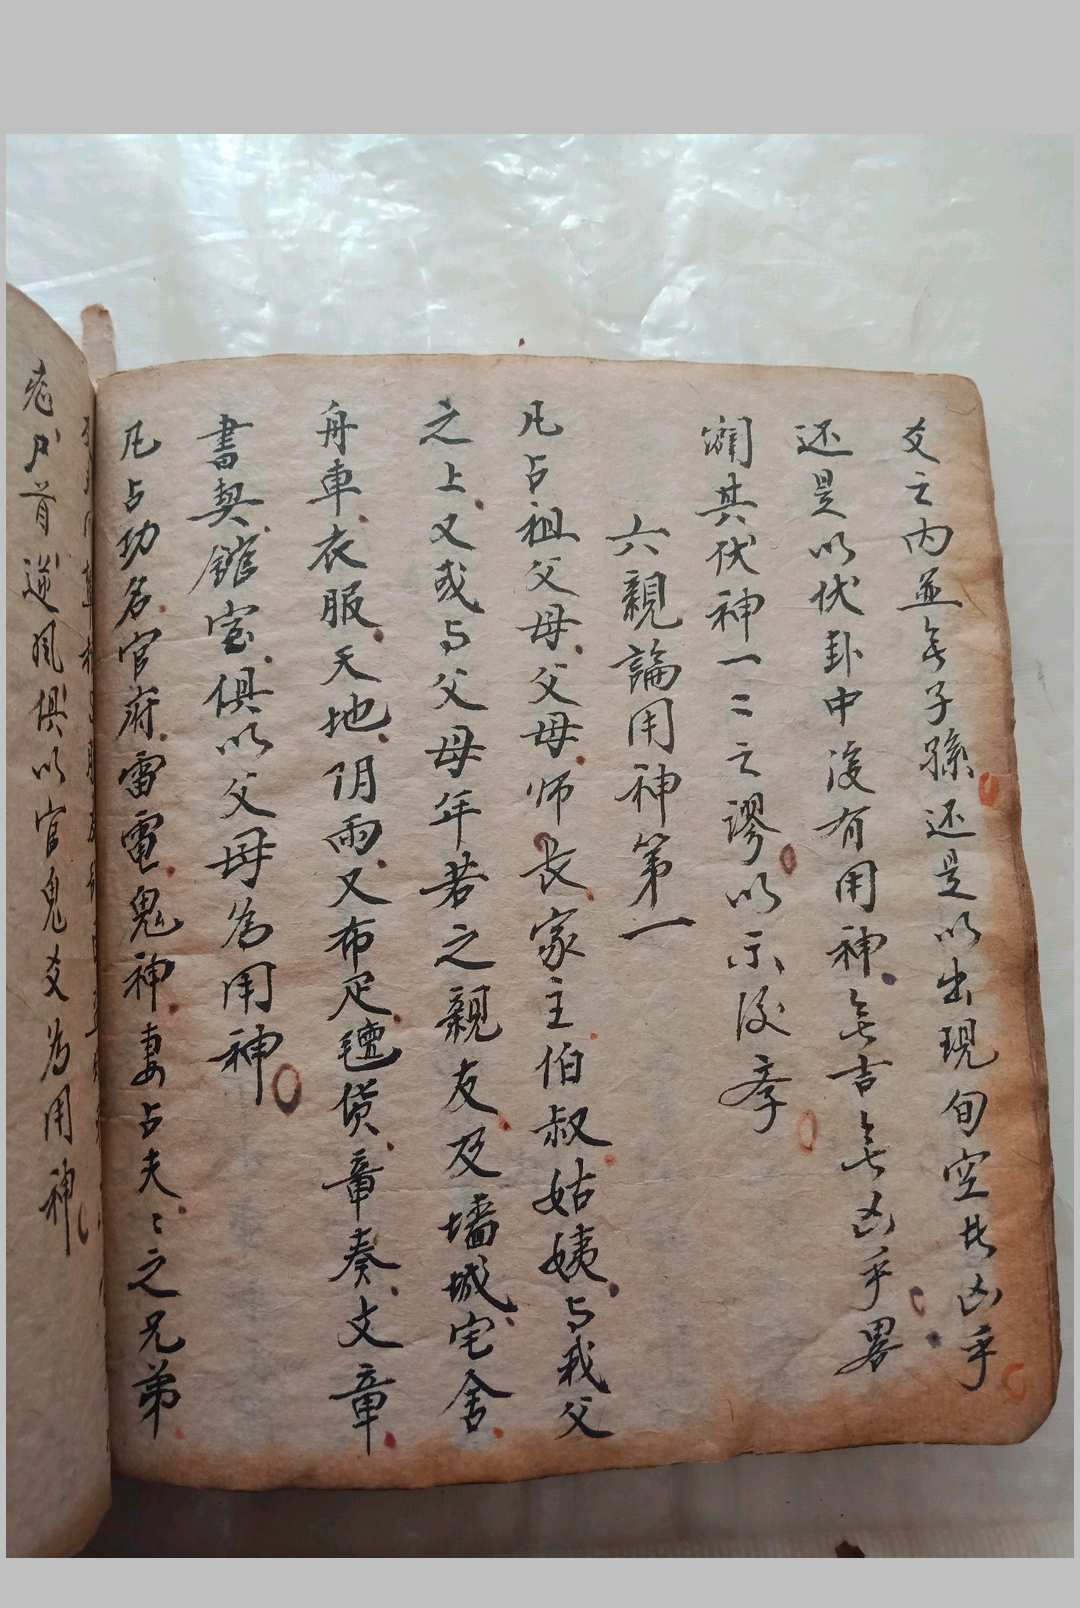 爻之内並无子孫还是以出現旬空此凶乎
还是以伏卦中復有用神无吉无凶乎畧
闢其伏神一二之謬以示後孝
六親論用神第一
凡占祖父母父母师長家主伯叔姑姨与我父
之上又或与父母年若之親友及墙城宅舍
舟車衣服天地阴雨又布疋氊貨章奏文章
書契館室俱以父母為用神
凡占功名官府雷電鬼神妻占夫〻之兄弟
首逆風俱以官鬼爻为用神